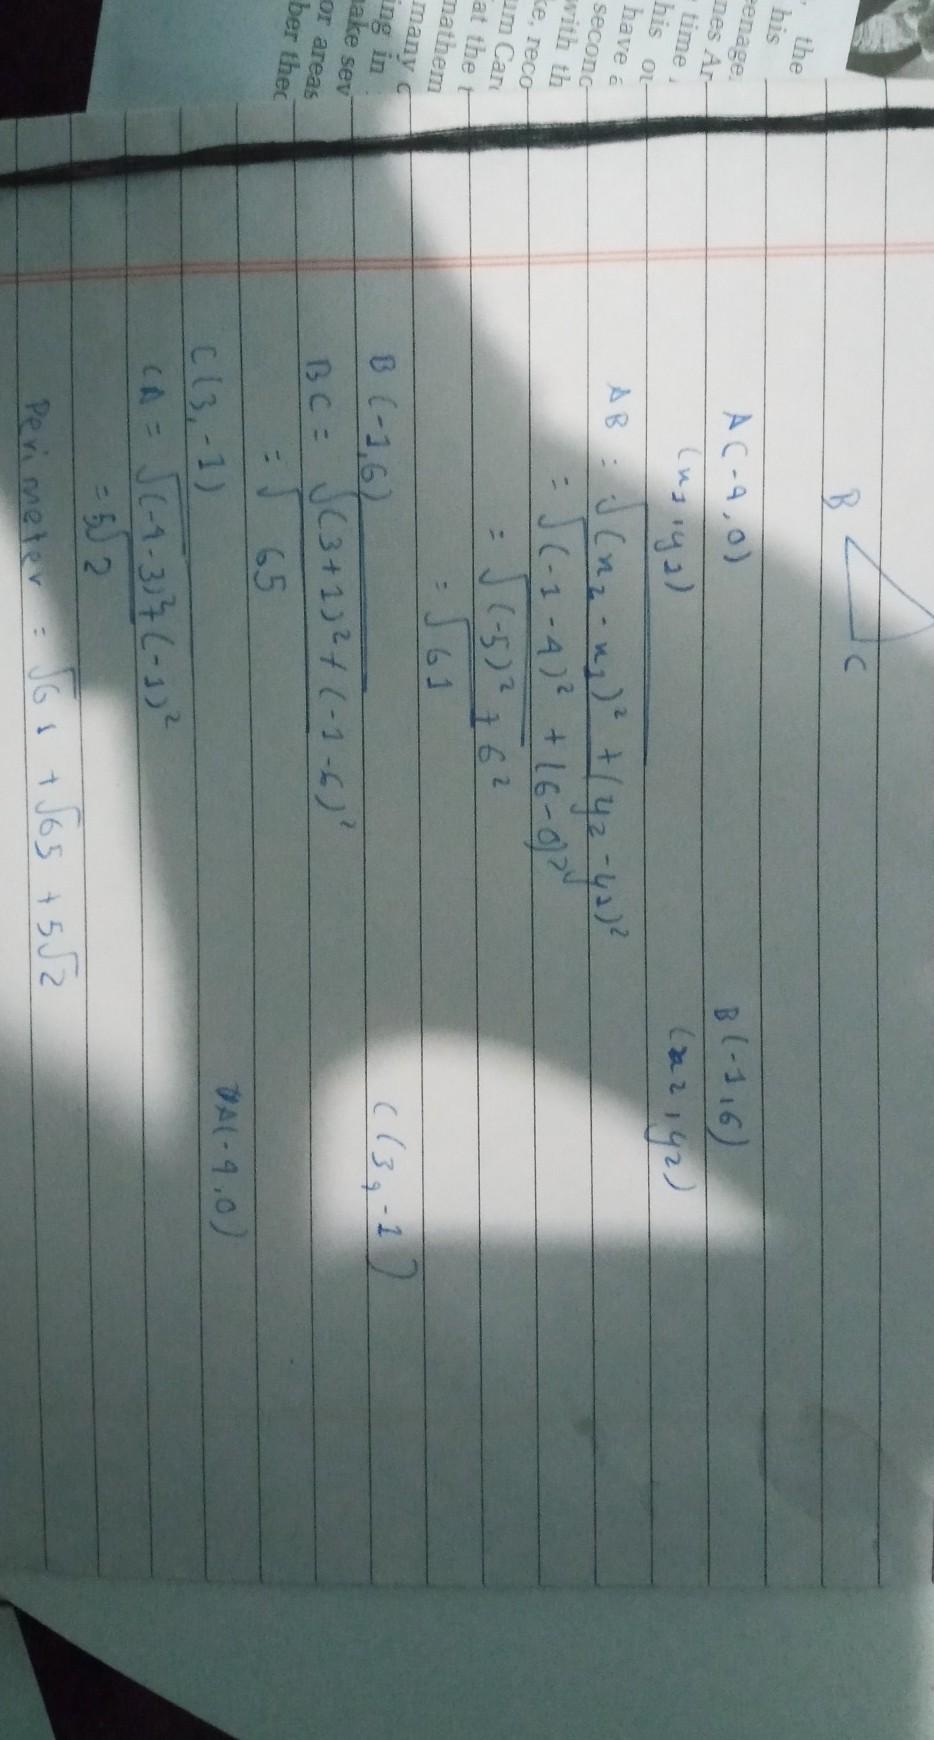 the
his
eenage.
nes Ar
time
his ou
have a
second
with th
ke, reco
um Car
at the
mathem
many c
ing in
ake sev
or areas
ber thec
B
C
A(-4,0) B(-1,6)
(x1,y1) (x2,y2)
AB : √(x2-x1)²+(y2-y1)²
= √(-1-4)² + (6-0)²
= √(-5)² + 6²
= √61
B(-1,6) C(3,-1)
BC = √(3+1)²+(-1-6)²
= √65
C(3,-1) A(-4,0)
CA = √(-4-3)²+(-1)²
= 5√2
Perimeter = √61 + √65 + 5√2